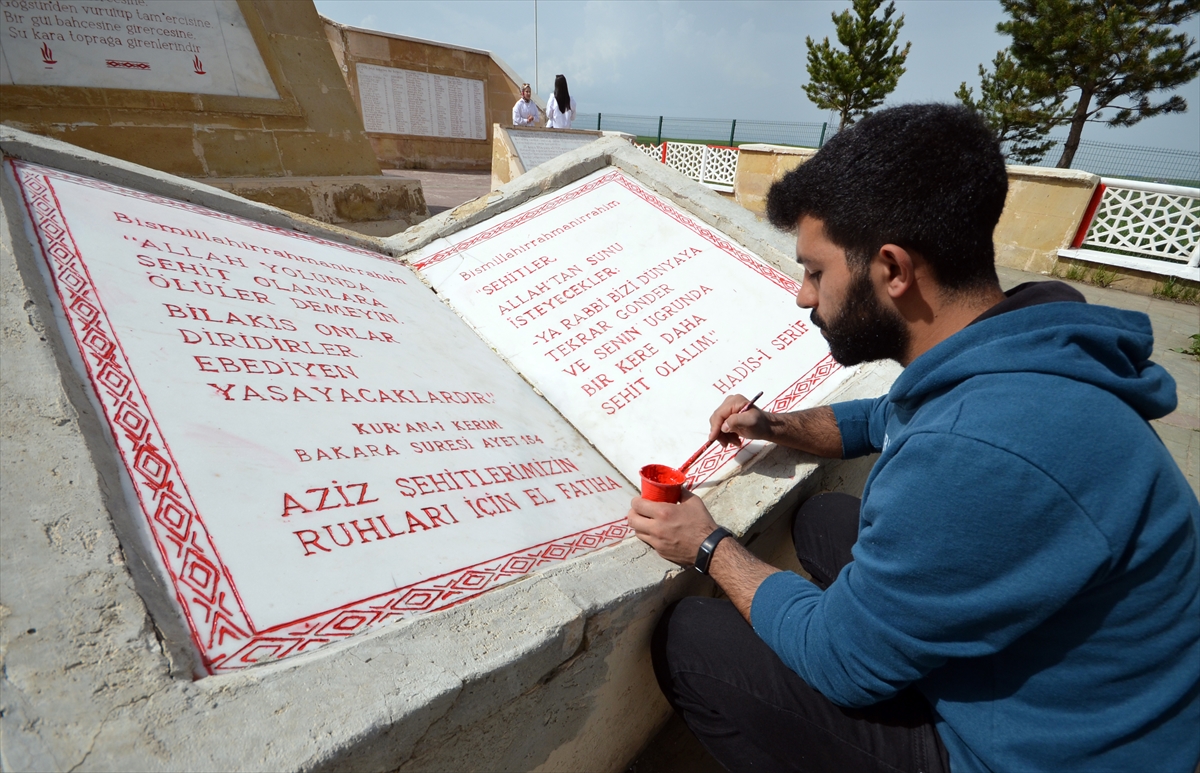 Göğsünden vurulup tam'ercisine
Bir gül bahçesine girercesine
Şu kara toprağa girenlerindir
Bismillahirrahmanirrahim
"ALLAH YOLUNDA
ŞEHİT OLANLARA
ÖLÜLER DEMEYİN.
BİLAKİS ONLAR
DİRİDİRLER.
EBEDİYEN
YAŞAYACAKLARDIR"
KUR'AN-I KERİM
BAKARA SURESİ AYET 154
AZİZ ŞEHİTLERİMİZİN
RUHLARI İÇİN EL FATİHA
Bismillahirrahmanirrahim
"ŞEHİTLER,
ALLAH'TAN ŞUNU
İSTEYECEKLER:
-YA RABBİ BİZİ DÜNYAYA
TEKRAR GÖNDER
VE SENİN UĞRUNDA
BİR KERE DAHA
ŞEHİT OLALIM."
HADİS-İ ŞERİF